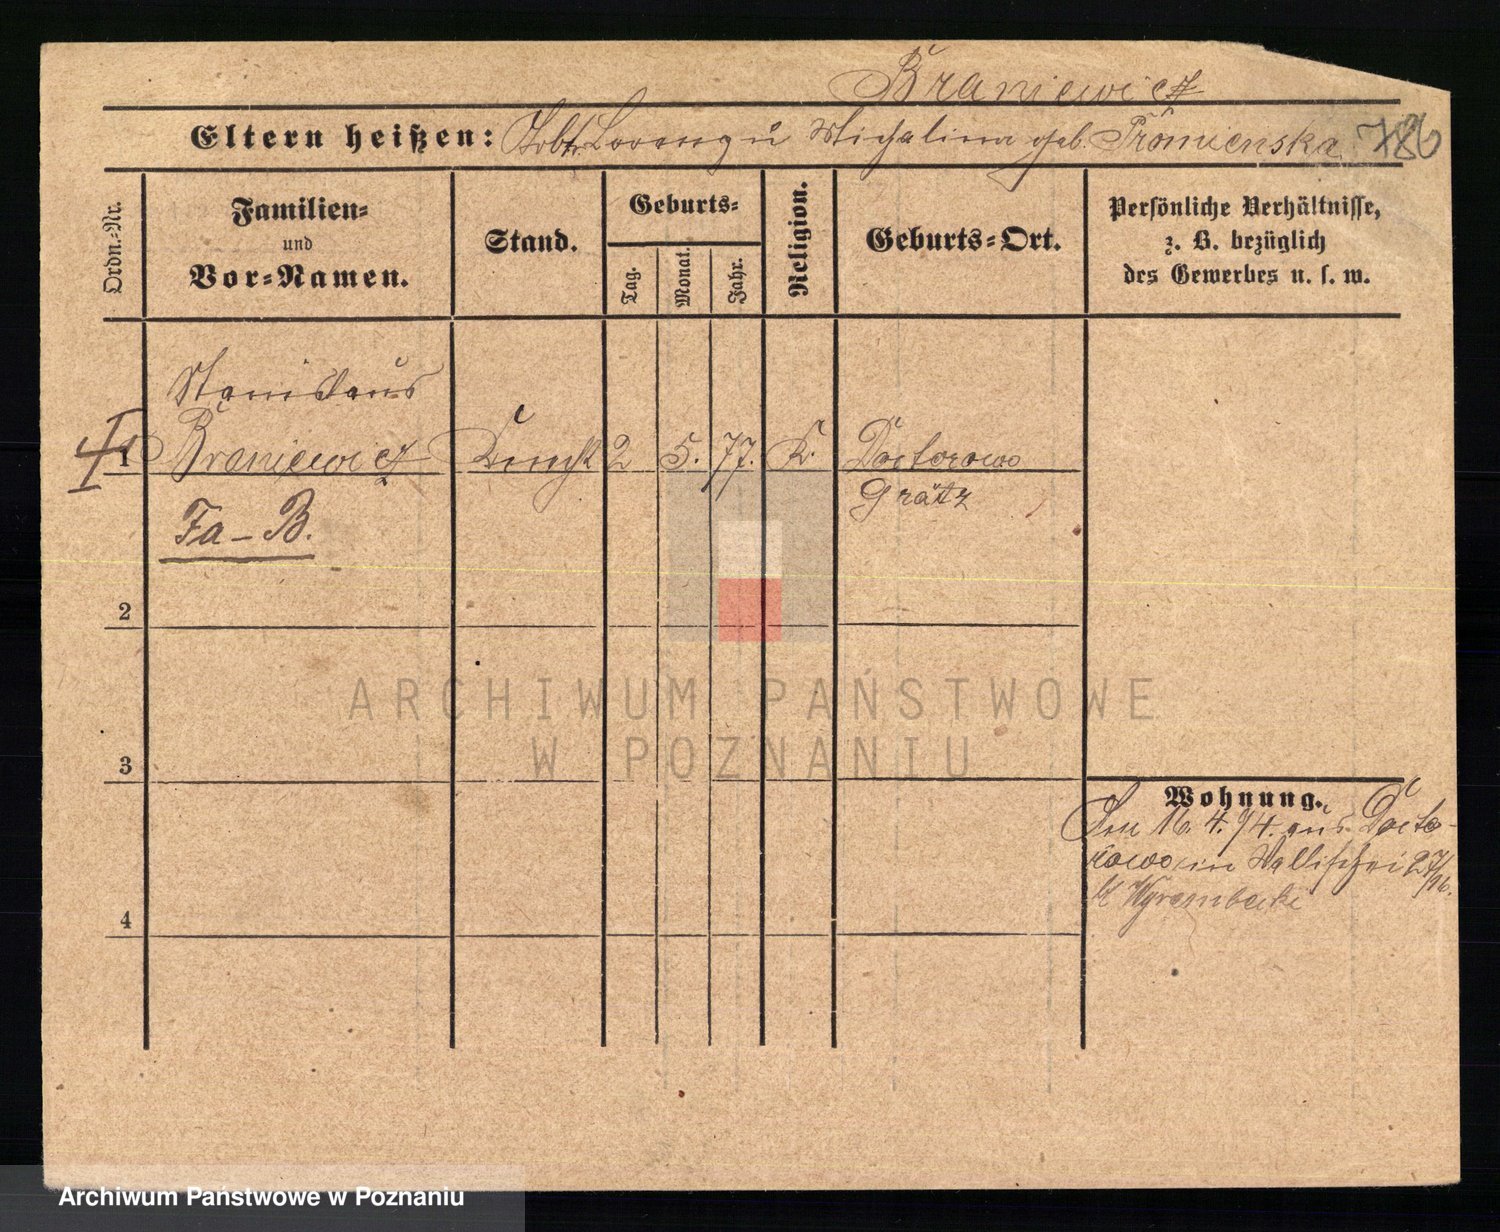 Braniewicz
Eltern heißen: Arbtr. Lorenz u Michalina geb. Promienska 786
Ordn.-Nr.
Familien-
und
Vor-Namen.
Stand.
Geburts-
Tag.
Monat.
Jahr.
Religion.
Geburts-Ort.
Persönliche Verhältnisse,
z. B. bezüglich
des Gewerbes u. s. w.
Stanislaus
1 Braniewicz Knecht 2 5. 77. K. Doctorowo
Grätz
Fa-B.
2
3
4
Wohnung.
Am 16. 4. 94. aus Docto-
rowo in Wallischei 27/
96.
ARCHIWUM PAŃSTWOWE
W POZNANIU
Archiwum Państwowe w Poznaniu